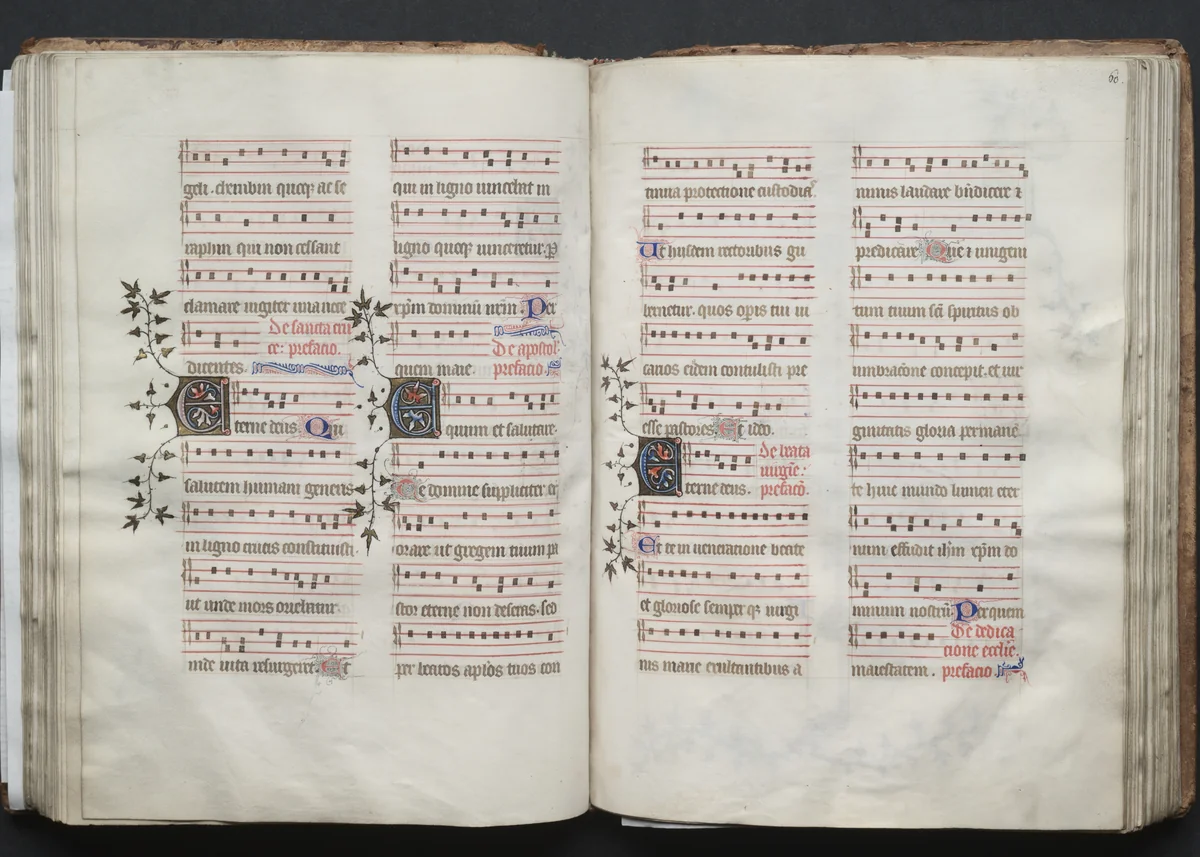 geli. cherubin quoq; ac se
raphin. qui non cessant
clamare iugiter una uoce
De sancta cru
ce: prefacio.
dicentes.
Eterne deus. Qui
salutem humani generis
in ligno crucis constituisti.
ut unde mors oriebatur.
inde uita resurgeret. Et
qui in ligno uincebat in
ligno quoq; uinceretur. p
xpm dominū nrm. Per
De apostol
quem maie. prefacio.
Equum et salutare.
Te domine suppliciter ex
orare ut gregem tuum pa
stor eterne non deseras. sed
per beatos aplos tuos con
60
tinua protectione custodias
Ut hiisdem rectoribus gu
bernetur. quos opis tui ui
carios eidem contulisti pre
esse pastores. Et ideo.
De beata
uirgie:
Eterne deus. prefacō.
Et te in ueneratione beate
et gloriose semper q; uirgi
nis marie exultantibus a
nimis laudare bndicere ⁊
predicare. Que ⁊ unigeni
tum tuum sci spiritus ob
umbracōne concepit. et uir
ginitatis gloria permane
te huic mundo lumen eter
num effudit ihm xpm do
minum nostrū. Per quem
De dedica
cione ecclie.
maiestatem. prefacio